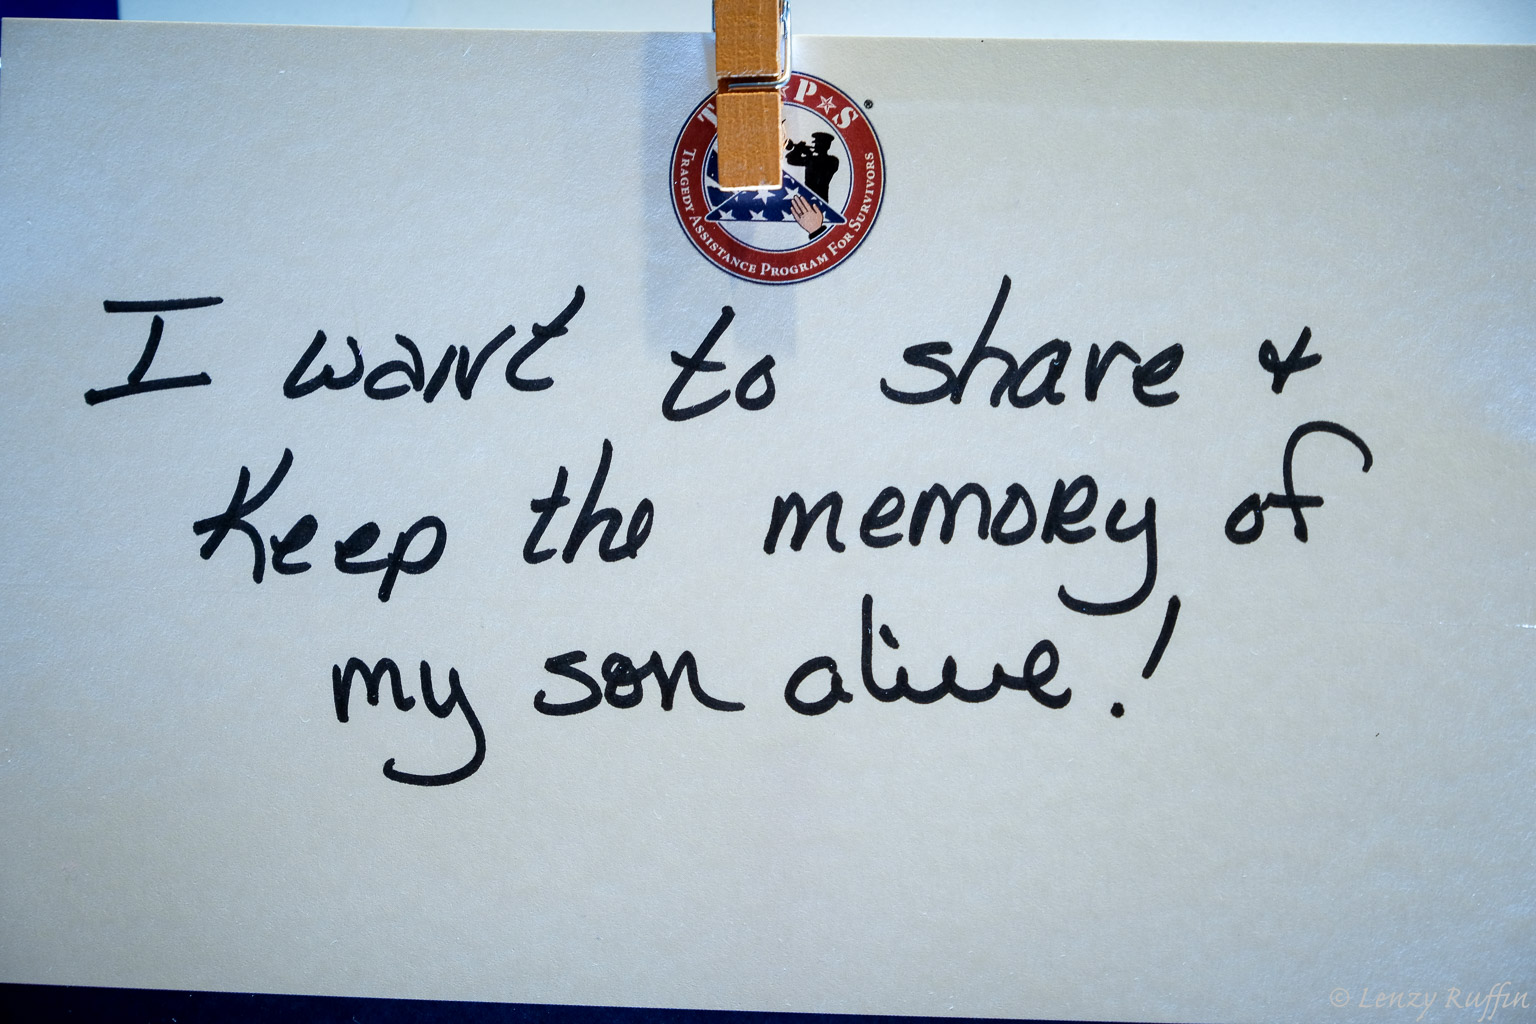 T★PS
®
TRAGEDY ASSISTANCE PROGRAM FOR SURVIVORS
I want to share &
Keep the memory of
my son alive!
© Lenzy Ruffin